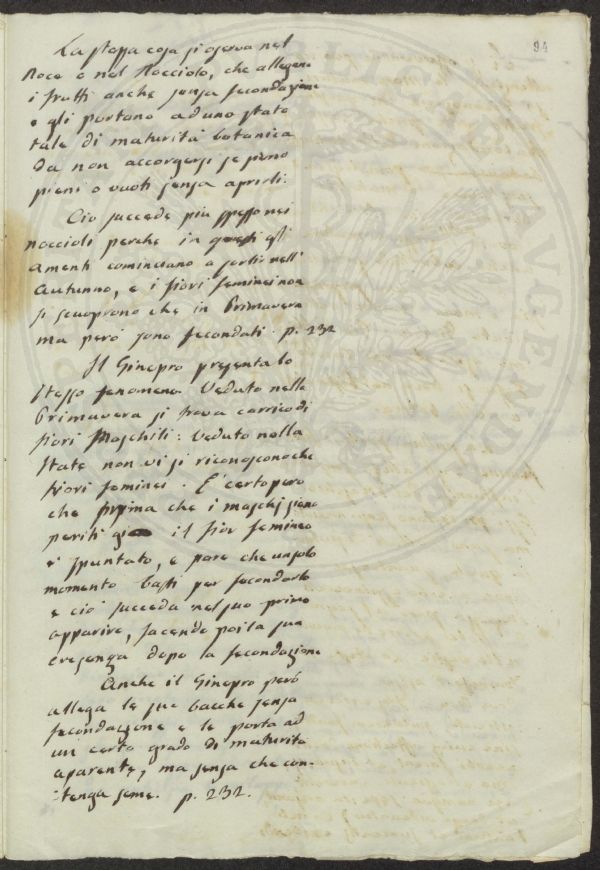 94
La stessa cosa si osserva nel
Noce e nel Nocciolo, che allegano
i frutti anche senza fecondazione
e gli portano ad uno stato
tale di maturità botanica
da non accorgersi se sieno
pieni o vuoti senza aprirli.
Ciò succede più spesso nei
noccioli perche in questi gli
amenti cominciano a sortir nell'
Autunno, e i fiori feminei non
si scuoprono che in Primavera
ma però sono fecondati. p. 232
Il Ginepro presenta lo
stesso fenomeno. Veduto nella
Primavera si trova carico di
fiori Maschili: Veduto nella
state non vi si riconoscono che
fiori feminei. E' certo pero
che prima che i maschj sieno
periti il fior femineo
è spuntato, e pare che un solo
momento basti per fecondarlo
e ciò succeda nel suo primo
apparire, facendo poi la sua
cresenza dopo la fecondazione
Anche il Ginepro però
allega le sue bacche senza
fecondazione e le porta ad
un certo grado di maturità
aparente, ma senza che con-
tenga seme. p. 232.